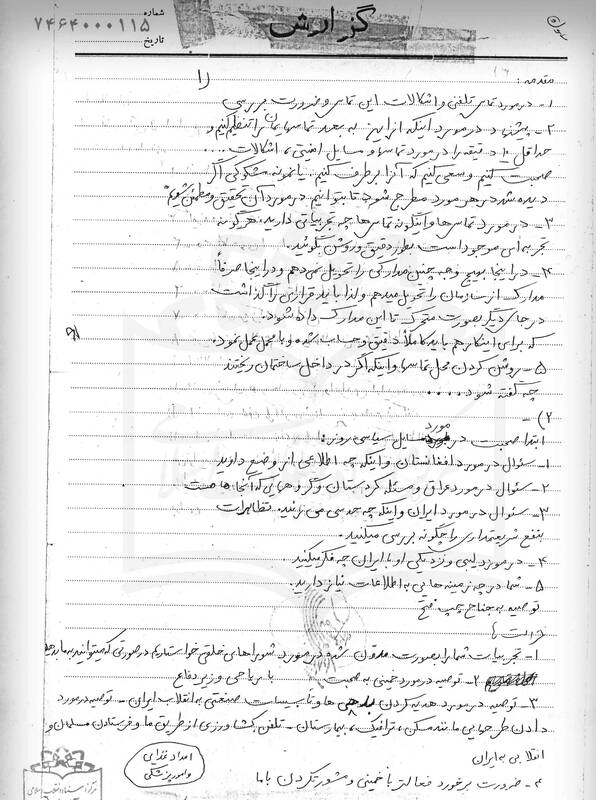 گزارش
شماره
۷۴۶۴۰۰۰۱۱۵
تاریخ
را
مقدمه:
۱- در مورد تماس تلفنی و اشکالات این تماس و ضرورت بررسی
۲- پیشنهاد در مورد اینکه از این به بعد تماسهایمان را تنظیم کنیم و
حداقل ۱۰ دقیقه را در مورد تماسها و مسایل امنیتی، اشکالات ...
صحبت کنیم و سعی کنیم که آنرا برطرف کنیم. یا نمونه مشکوکی اگر
دیده شد در هر مورد مطرح شود تا بتوانیم در مورد آن تحقیق و مطمئن شویم
۳- در مورد تماس‌ها و اینگونه تماس‌ها چه تجربیاتی دارید. هرگونه
تجربه‌ای موجود است بطور دقیق و روشن بگوئید.
۴- در اینجا بهیچ وجه چنین مدارکی را تحویل نمی‌دهم و در اینجا صرفاً
مدارک از سازمان را تحویل میدهم و لذا باید قراری را گذاشت
در جای دیگر بصورت متحرک تا این مدارک داده شود.
که برای اینکار هم باید کاملاً دقیق و حساب شده و با محمل عمل نمود.
۵- روشن کردن محمل تماسها و اینکه اگر در داخل ساختمان ریختند
چه گفته شود....
۲) -
ابتدا صحبت در مورد مسایل سیاسی روز:
۱- سئوال در مورد افغانستان و اینکه چه اطلاعی از وضع دارید
۲- سئوال در مورد عراق و مسئله کردستان و گروههایی که آنجا هست
۳- سئوال در مورد ایران و اینکه چه حدسی می‌زنید. تظاهرات
بنفع شریعتمداری را چگونه بررسی میکنید.
۴- در مورد لیبی و نزدیکی او با ایران چه فکر میکنید.
۵- شما در چه زمینه‌هایی به اطلاعات نیاز دارید.
توصیه به جناح چپ فتح
۱- تجربیات شما را بصورت مدون شده در مورد شوراهای خلقی خواستاریم در صورتی که میتوانید به ما بدهید
۲- توصیه در مورد خمینی به صحبت با ریاحی وزیر دفاع
۳- توصیه در مورد هدیه کردن بدهی‌ها و تأسیسات صنعتی به انقلاب ایران - توصیه در مورد
دادن طرحهایی مانند مسکن، ترافیک، بیمارستان - تلفن کشاورزی از طریق ما و فرستادن مسلمان و
انقلابی به ایران
۴- ضرورت برخورد فعالتر با خمینی و مشورت کردن با ما
امداد غذایی
و امور پزشکی